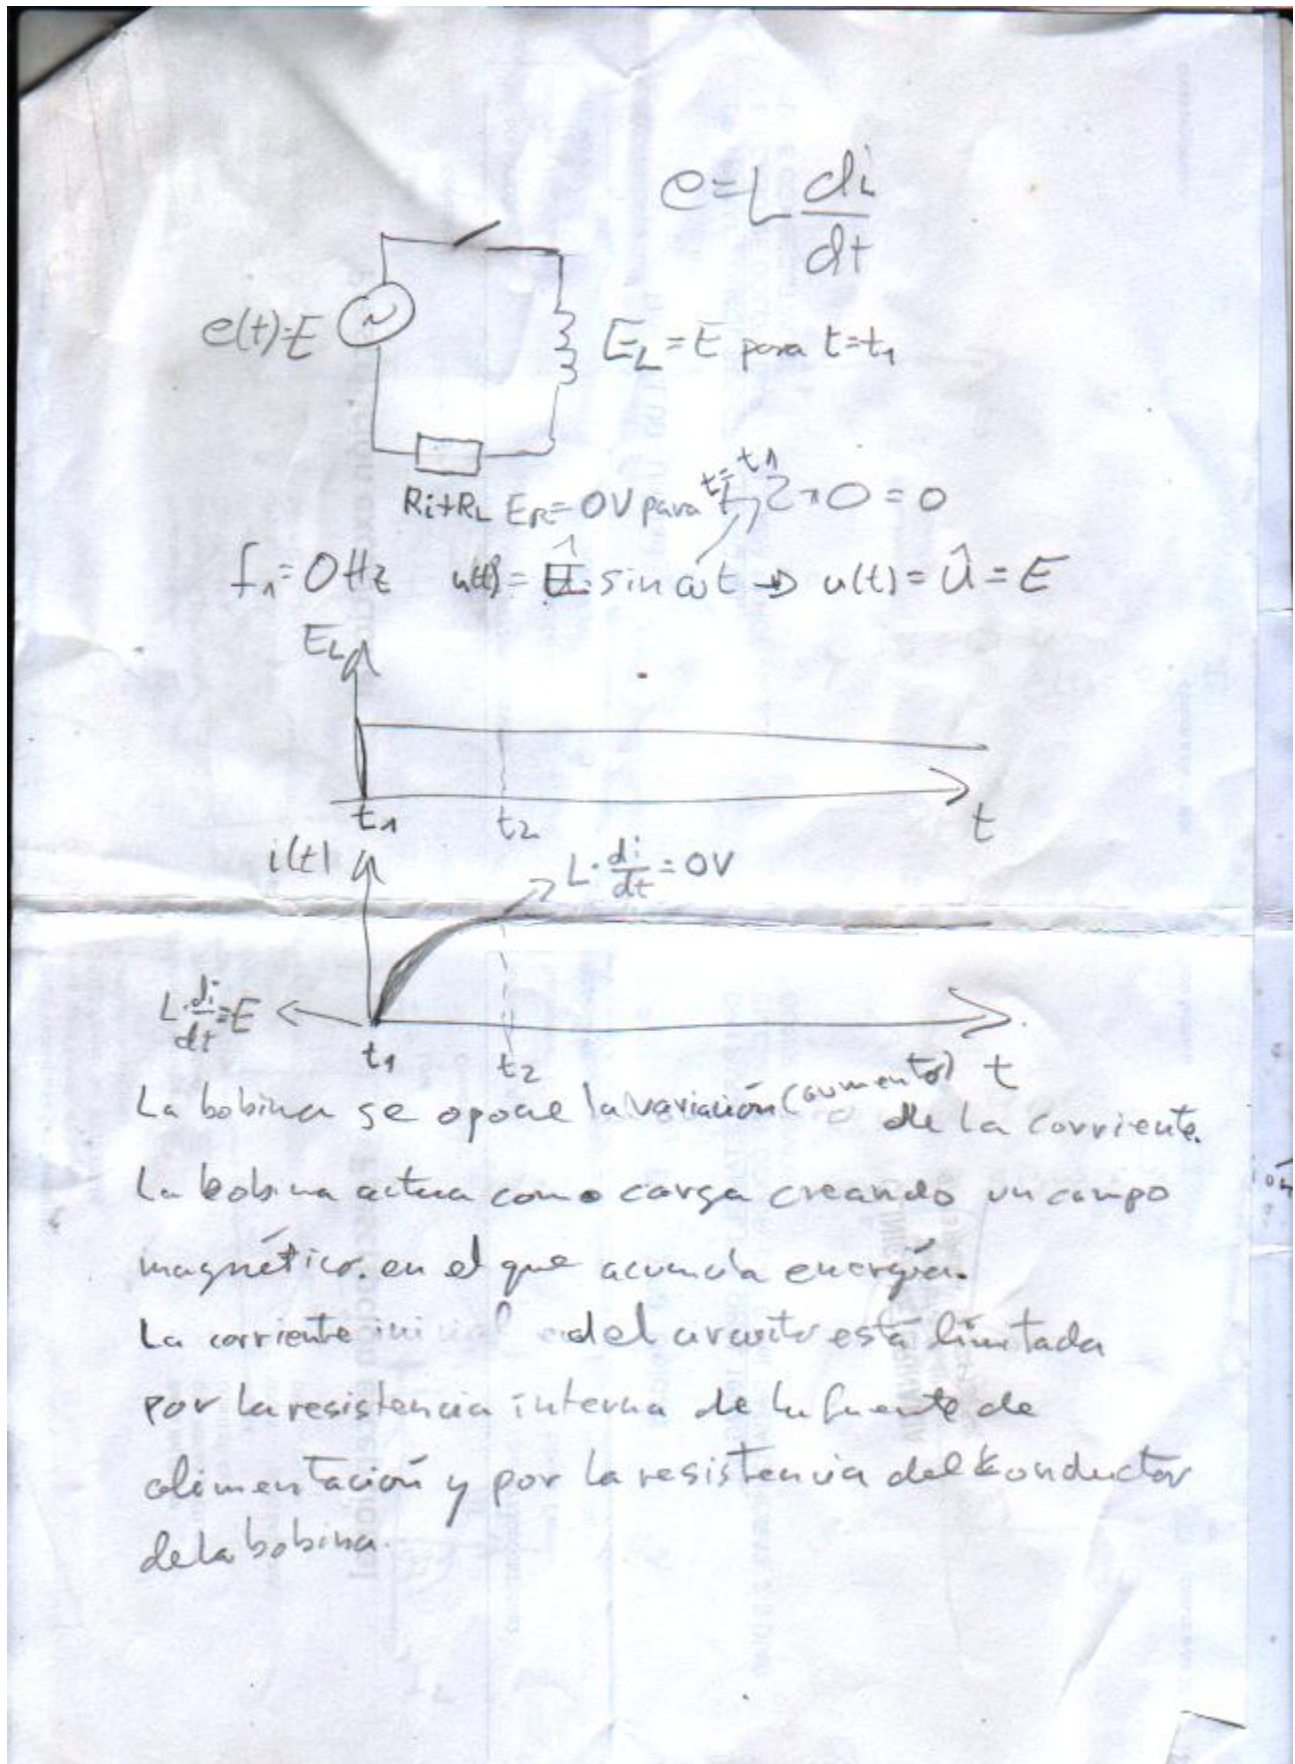 e=L di/dt
e(t)=E
E_L=E para t=t1
Ri+RL E_R=0V para t=t1 2π0=0
f1=0Hz u(t)=Û·sin ωt ⇒ u(t)=Û=E
E_L
t1 t2 t
i(t)
L·di/dt=0V
L·di/dt=E
t1 t2 t
La bobina se opone la variación (aumento) de la corriente.
La bobina actua como carga creando un campo
magnético. en el que acumula energía.
La corriente inicial del circuito está limitada
por la resistencia interna de la fuente de
alimentación y por la resistencia del konductor
de la bobina.